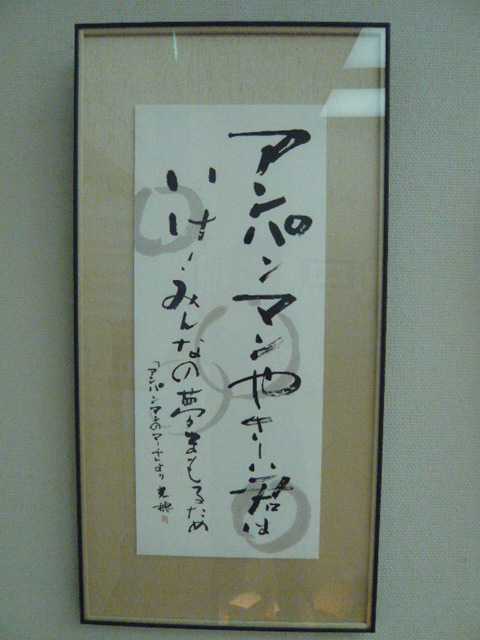 アンパンマンやさしい君は
いけ！みんなの夢まもるため
「アンパンマンのマーチ」より